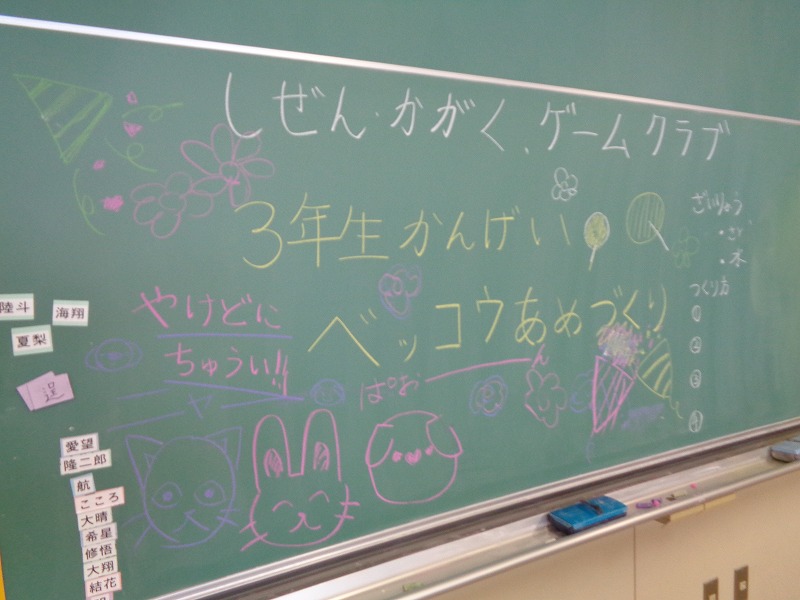 しぜん・かがく、ゲームクラブ
3年生かんげい
ベッコウあめづくり
やけどに
ちゅうい!!
ざいりょう
・さ
・水
つくり方
①
②
③
④
陸斗
海翔
夏梨
愛望
隆二郎
航
こころ
大晴
希星
修悟
大翔
結花